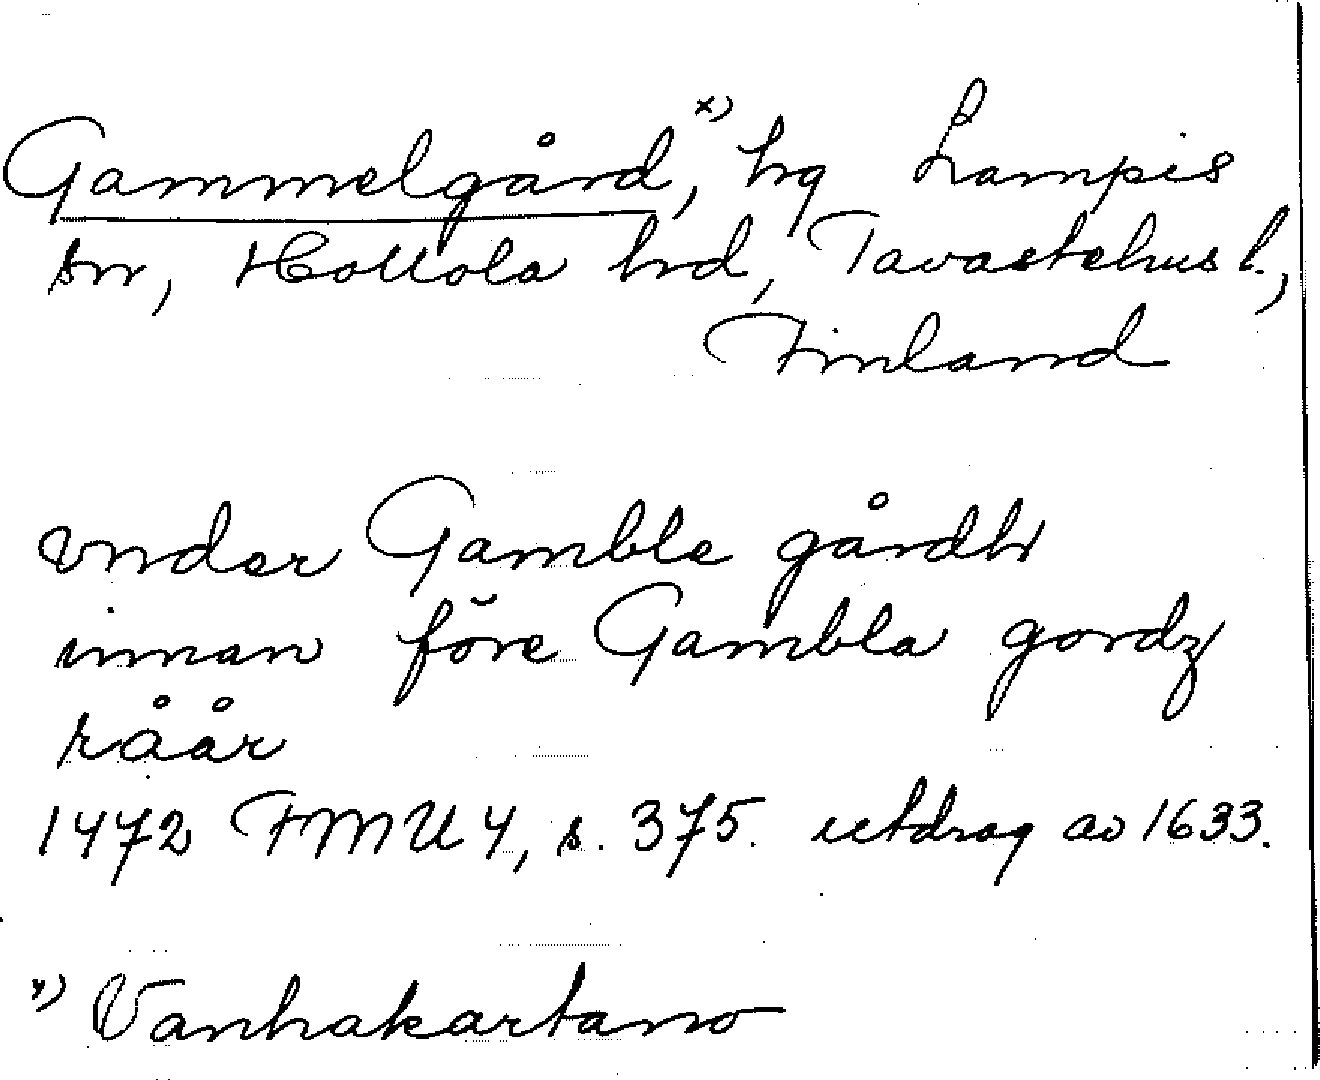 Gammelgård,ˣ⁾ hg Lampis
sn, Hollola hrd, Tavastehus l.,
Finland
vnder Gamble gårdh
innan före Gambla gordz
råår
1472 FMU 4, s. 375. utdrag av 1633.
ˣ⁾ Vanhakartano